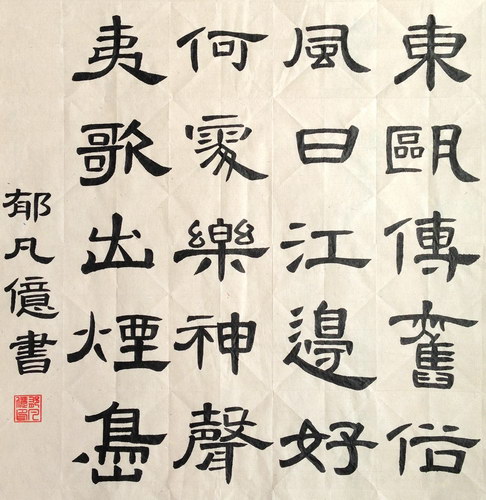 東甌傳舊俗
風日江邊好
何處樂神聲
夷歌出煙島
郁凡億書